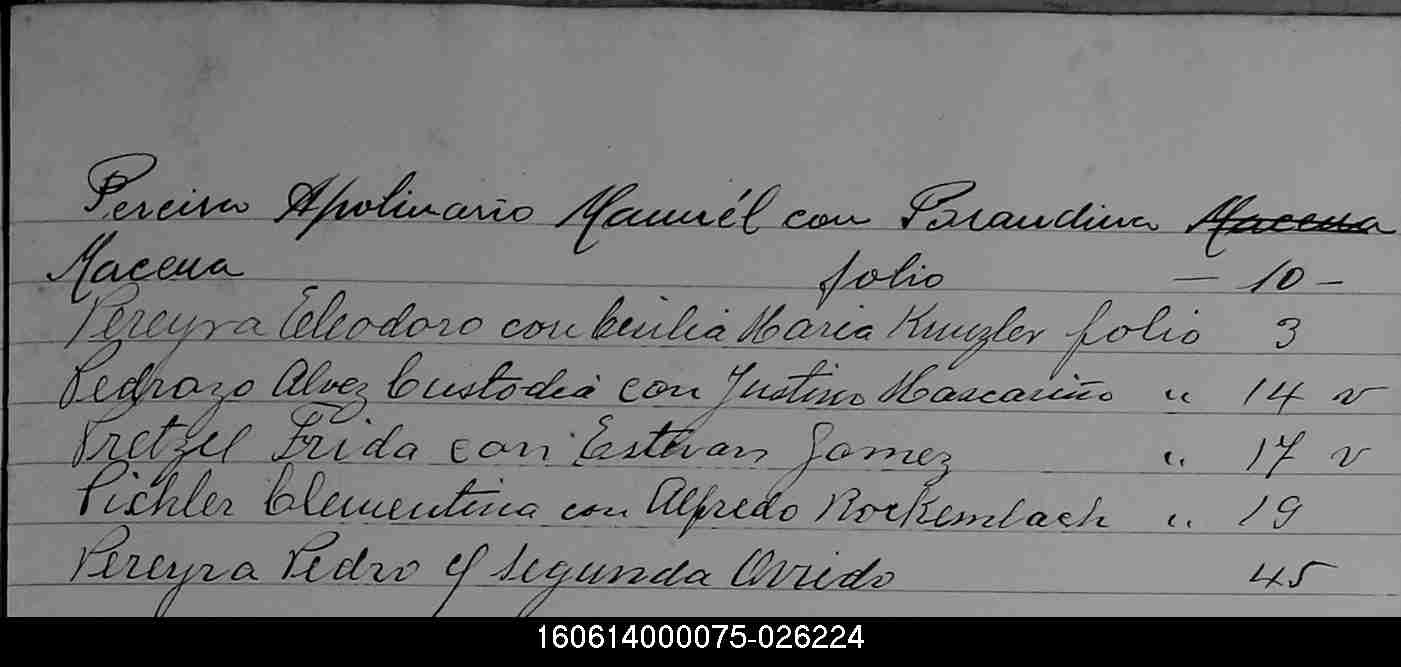 Pereira Apolinario Manuél con Brandina Macena
Macena folio — 10 –
Pereyra Eleodoro con Cecilia Maria Kunzler folio 3
Pedrozo Alvez Custodia con Justino Mascariño " 14 v
Pretzel Frida con Estevan Gomez " 17 v
Pichler Clementina con Alfredo Rockembach " 19
Pereyra Pedro y Segunda Oviedo 45
160614000075-026224